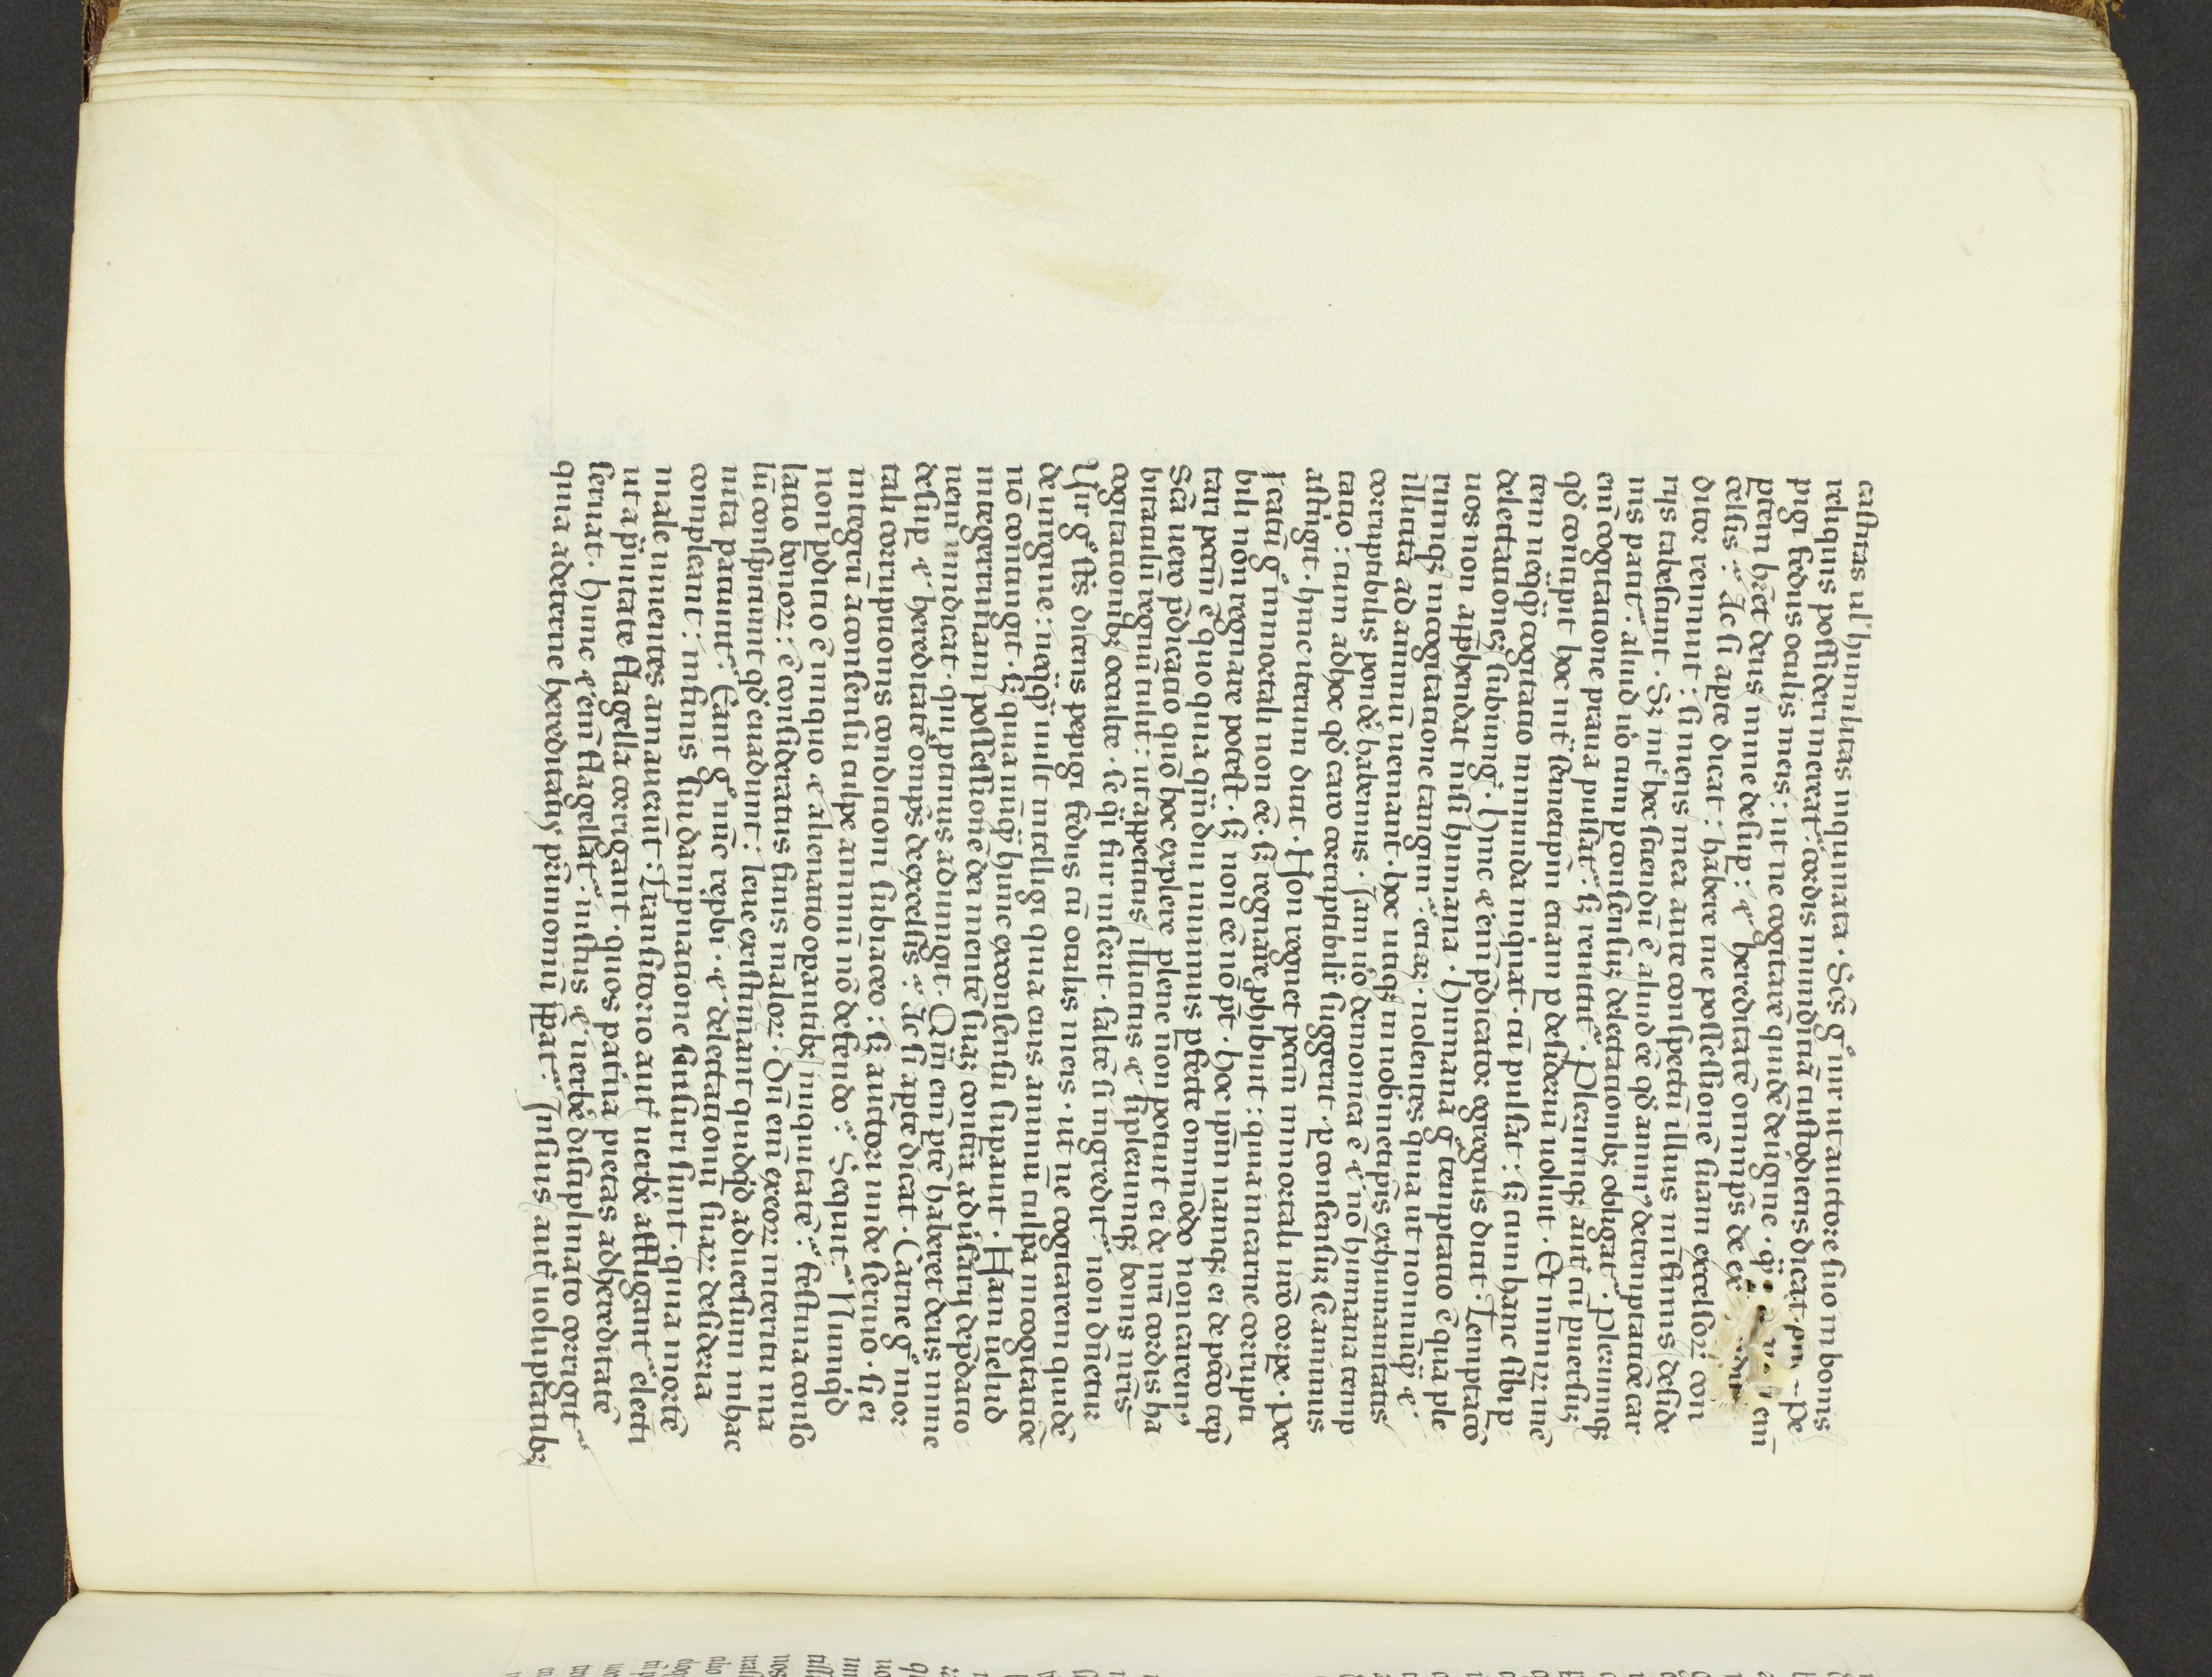 castitas ul' humilitas inquinata. Scs̄ gͦ uir ut auctore suo in bonis
reliquis possideri mereat᷑: cordis mundiciā custodiens dicat. pe
pigi fedus oculis meis: ut ne cogitarē quidē de uirgine. enī
ptem hēret deus in me desup: ⁊ hereditatē omnip̄s de ex
celsis: Ac si apte dicat: habere me possessionē suam excelsoꝝ con
ditor rennuit: si mens mea ante conspectū illius in infimis deside
riis tabescunt. Sꝫ int᷑ hec sciendū ē aliud eē qd animꝰ de temptatiōe car
nis patit᷑. aliud uō cum p consensuꝫ delectationibꝫ obligat᷑. Plerumqꝫ
eni cogitatione praua pulsat᷑: sꝫ renitit᷑. Plerumqꝫ aut cū puersuꝫ
qd concipit hoc int᷑ semetip̄m etiam p desideriū uoluit. Et nimiꝝ mē
tem neqq̄ cogitatio inmunda inq̇nat. cū pulsat: sꝫ cum hanc sibi p
delectationeꝫ subiungit. Hinc ⁊enī p̄dicator egregius dicit. Temptatō
uos non app̄hendat nisi humana. Humana gͦ temptatio ē qua ple
rumqꝫ in cogitatione tangimur etiaꝫ nolentes quia ut nonnūq̄ ⁊
illicita ad animū ueniant. hoc utiqꝫ in nobīmetip̄is ex humanitatis
corruptibilis pondē habemus. Jam uō demoniaca ē ⁊ nō humana temp
tatio: cum ad hoc qd caro corruptibilit᷑ suggerit. p consensuꝫ se animus
astringit. hinc iterum dicit. Non regnet pccm̄ in uro mortali corpe. Pec
catū gͦ in mortali non eē. sꝫ regnare phibuit: quia in carne corrupti
bili non regnare potest. sꝫ non eē nō pt. hoc ip̄m namqꝫ ei de pccō tēp
tari pccm̄ ē quo quia q̇diu uiuimus pfecte omnimodo non caremꝰ
Scā uero p̄dicatio qm̄ hoc expellere plene non potuit ei de nri cordis ha
bitaculū regnū tulit: ut appetitus illicitus ⁊si plerumqꝫ bonis nris
cogitationibꝫ occulte se q̇si fur inserit. saltē si ingredit᷑ non dūetur
Uir gͦ scs̄ dicens pepigi fedus cū oculis meis. ut ne cogitarem quidē
de uirgine: neqq̄ uult intelligi quia eius animū culpa in cogitatiōe
nō contingit. sꝫ quia nūq̄ hunc ex consensu supauit. Nam uelud
integerrimam possessionē dei mentē suaꝫ contra aduersarii dep̄datio
nem uindicat. qui p̄tinus adiungit. Qm̄ em̄ ptē haberet deus in me
desup ⁊ hereditatē omips̄ de excelsis: Ac si apte dicat. Carne gͦ mor
tali corruptionis condicioni subiaceo: sꝫ auctori unde seruio. si ei
integrū a consensu culpe animū nō defendo: Sequit᷑. Nunqd
non pditio ē iniquo ⁊ alienatio opantibꝫ iniquitatē: festina conso
latio bonoꝝ: ē consideratus finis maloꝝ. Dū enī ex eoꝝ interitu ma
lū conspiciunt qd euadunt: leue existimant quidq̇d aduersum in hac
uita patiunt᷑. Eant gͦ nūc repbi. ⁊ delectationū suaꝝ desideria
compleant: in finis sui dampnatione sensuri sunt. quia mortē
male uiuentes amauerūt: Transitorio aut uerbē affligant᷑ electi
ut a p̄uitate flagella corrigant. quos patna pietas ad hereditatē
seruat. hunc ⁊enī flagellat᷑ iustus ⁊ uerbē discipinato corrigit᷑
quia ad eterne hereditatis pa̅trimoniū ꝑpat᷑: Iniustus aut uoluptatibꝫ